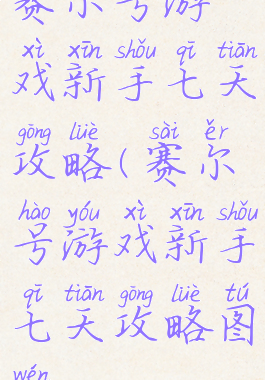 赛尔号游
xì xīn shǒu qī tiān
戏新手七天
gōng lüè sài ěr
攻略(赛尔
hào yóu xì xīn shǒu
号游戏新手
qī tiān gōng lüè tú
七天攻略图
wén